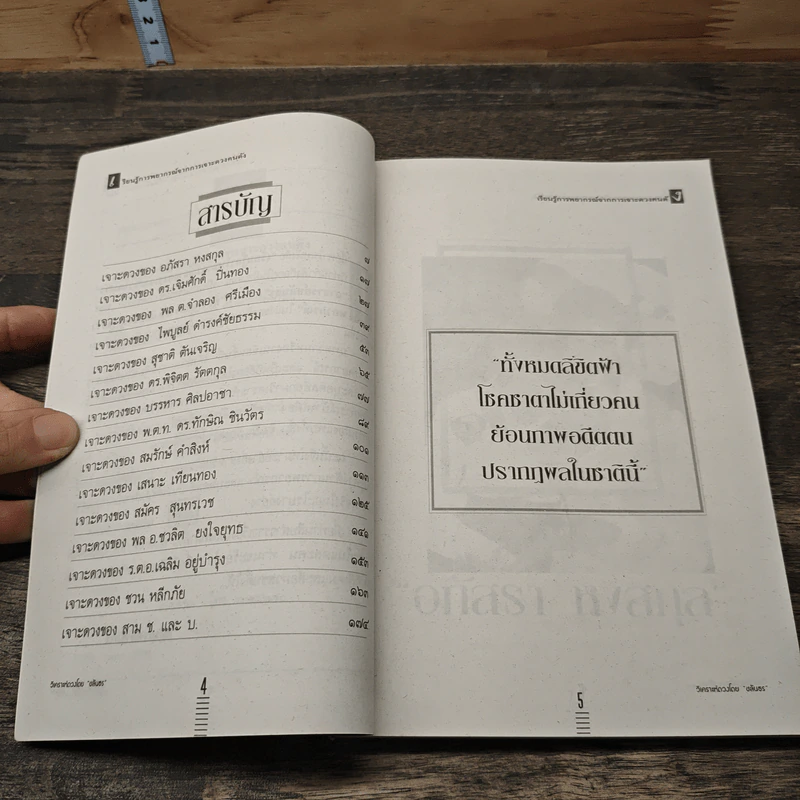 2
1
เรียนรู้การพยากรณ์จากการเจาะดวงคนดัง
สารบัญ
เจาะดวงของ อภัสรา หงสกุล ๗
เจาะดวงของ ดร.เจิมศักดิ์ ปิ่นทอง ๑๗
เจาะดวงของ พล ต.จำลอง ศรีเมือง ๒๗
เจาะดวงของ ไพบูลย์ ดำรงค์ชัยธรรม ๓๙
เจาะดวงของ สุชาติ ตันเจริญ ๕๓
เจาะดวงของ ดร.พิจิตต รัตตกุล ๖๕
เจาะดวงของ บรรหาร ศิลปอาชา ๗๗
เจาะดวงของ พ.ต.ท. ดร.ทักษิณ ชินวัตร ๘๙
เจาะดวงของ สมรักษ์ คำสิงห์ ๑๐๑
เจาะดวงของ เสนาะ เทียนทอง ๑๑๓
เจาะดวงของ สมัคร สุนทรเวช ๑๒๕
เจาะดวงของ พล อ.ชวลิต ยงใจยุทธ ๑๔๑
เจาะดวงของ ร.ต.อ.เฉลิม อยู่บำรุง ๑๕๓
เจาะดวงของ ชวน หลีกภัย ๑๖๓
เจาะดวงของ สาม ช. และ บ. ๑๗๔
วิเคราะห์ดวงโดย "ชลินธร"
4
เรียนรู้การพยากรณ์จากการเจาะดวงคนดัง
"ทั้งหมดลิขิตฟ้า
โชคชาตาไม่เที่ยวคน
ย้อนภาพอดีตตน
ปรากฏผลในชาตินี้"
วิเคราะห์ดวงโดย "ชลินธร"
5